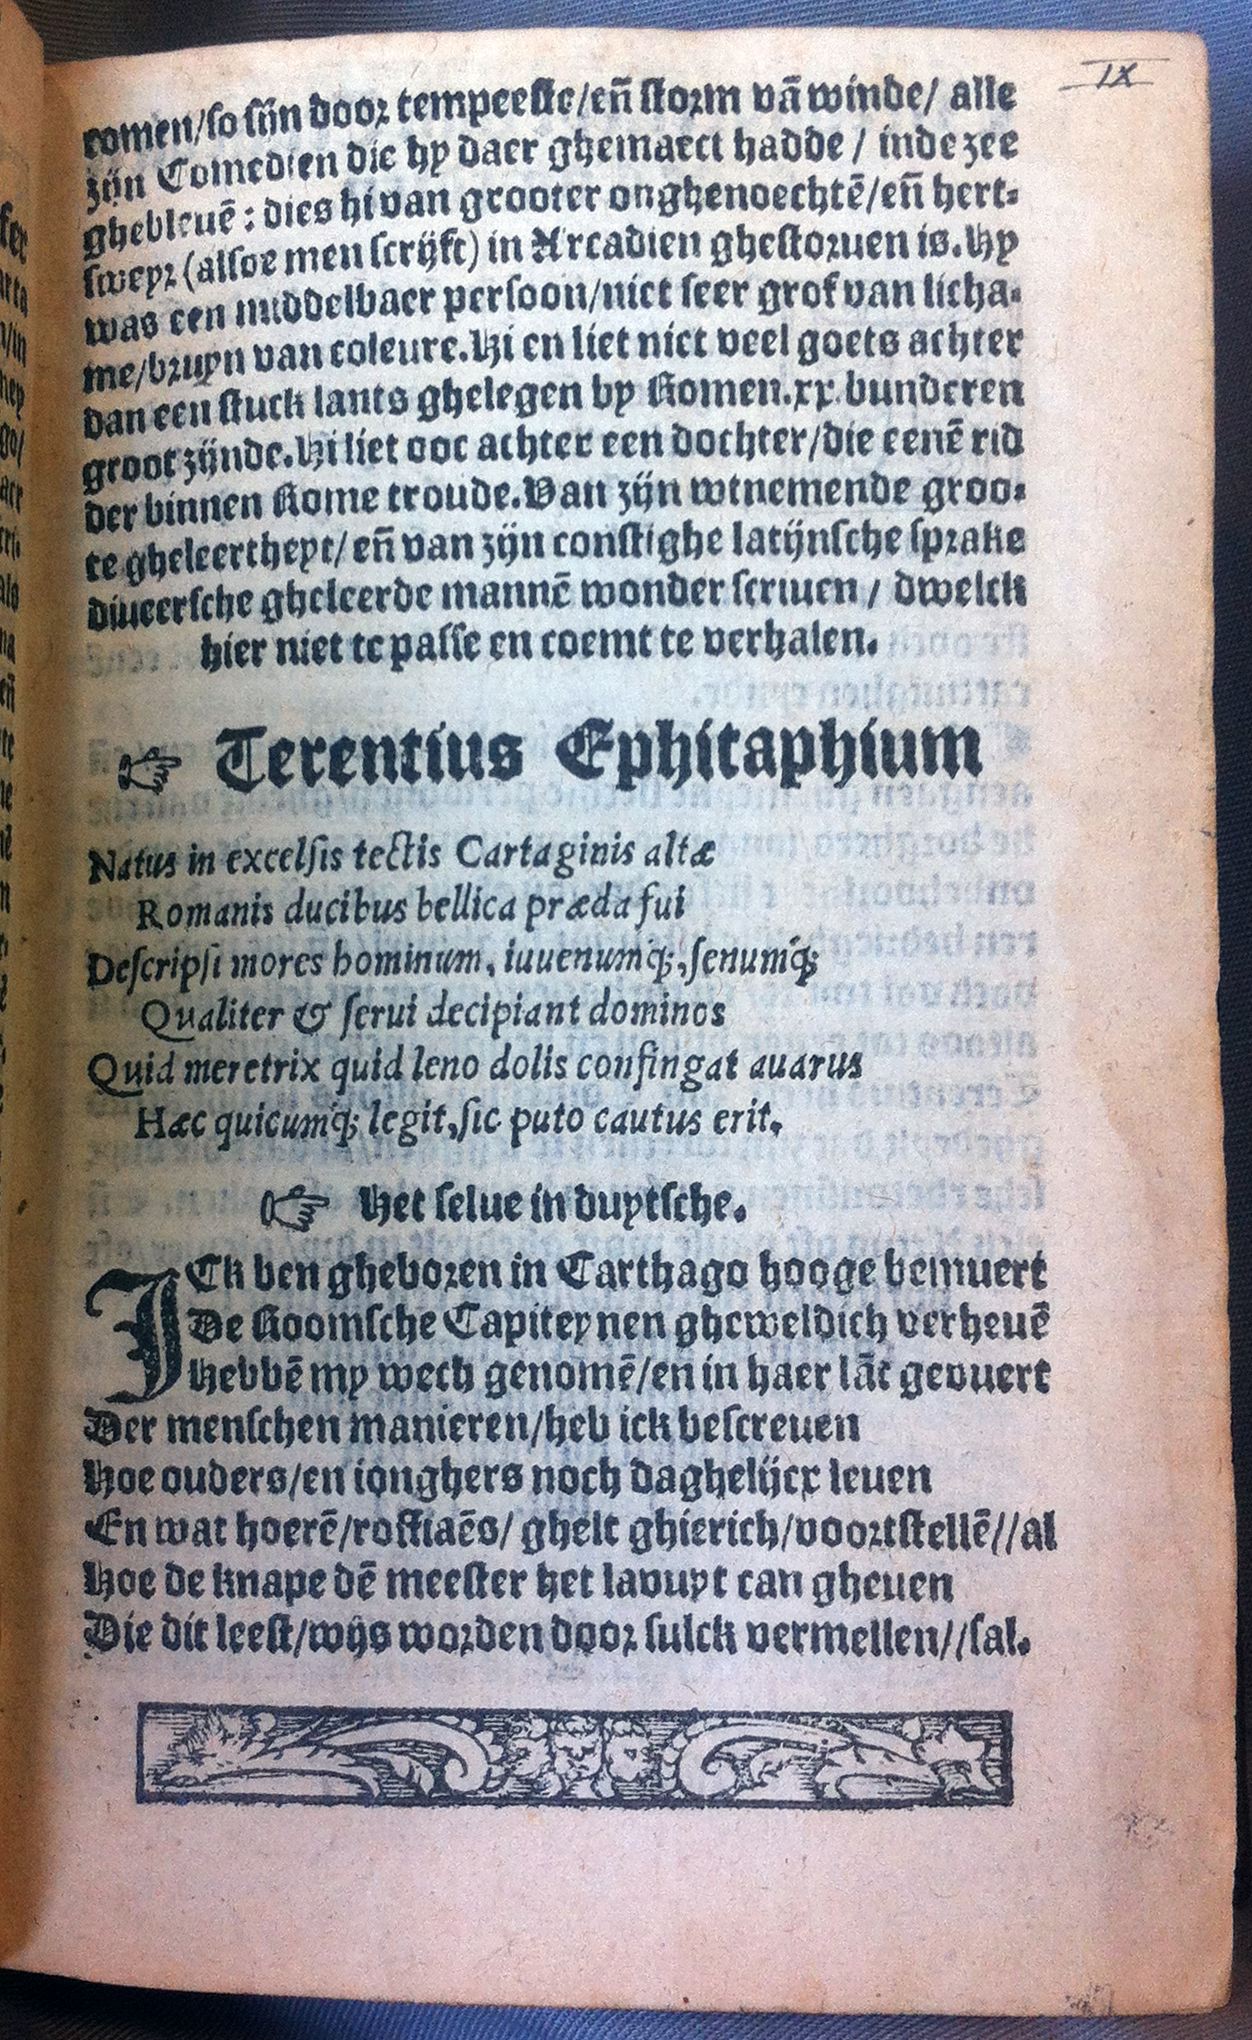 IX
comen/so sijn door tempeeste/en̄ storm vā winde/ alle
zijn Comedien die hy daer ghemaect hadde / inde zee
ghebleuē : dies hi van grooter onghenoechtē/en̄ hert-
sweyr (alsoe men scrijft) in Arcadien ghestoruen is. Hy
was een middelbaer persoon/niet seer grof van licha-
me/bruyn van coleure. Hi en liet niet veel goets achter
dan een stuck lants ghelegen by Romen .xx. bunderen
groot zijnde. Hi liet ooc achter een dochter/die eenē rid
der binnen Rome troude. Van zijn wtnemende groo-
te gheleertheyt/ en̄ van zijn constighe latijnsche sprake
diueersche gheleerde mannē wonder scriuen / dwelck
hier niet te passe en coemt te verhalen.
☞ Terentius Ephitaphium
Natus in excelsis tectis Cartaginis altæ
Romanis ducibus bellica præda fui
Descripsi mores hominum, iuuenumq́;, senumq́;
Qualiter & serui decipiant dominos
Quid meretrix quid leno dolis confingat auarus
Hæc quicumq́; legit, sic puto cautus erit.
☞ Het selue in duytsche.
ICk ben gheboren in Carthago hooge bemuert
De Roomsche Capiteynen gheweldich verheuē
Hebbē my wech genomē/en in haer lāt gevuert
Der menschen manieren/heb ick bescreuen
Hoe ouders/en ionghers noch daghelijcx leuen
En wat hoerē/roffiaēs/ ghelt ghierich/voortstellē//al
Hoe de knape dē meester het lavuyt can gheuen
Die dit leest/wijs worden door sulck vermellen//sal.